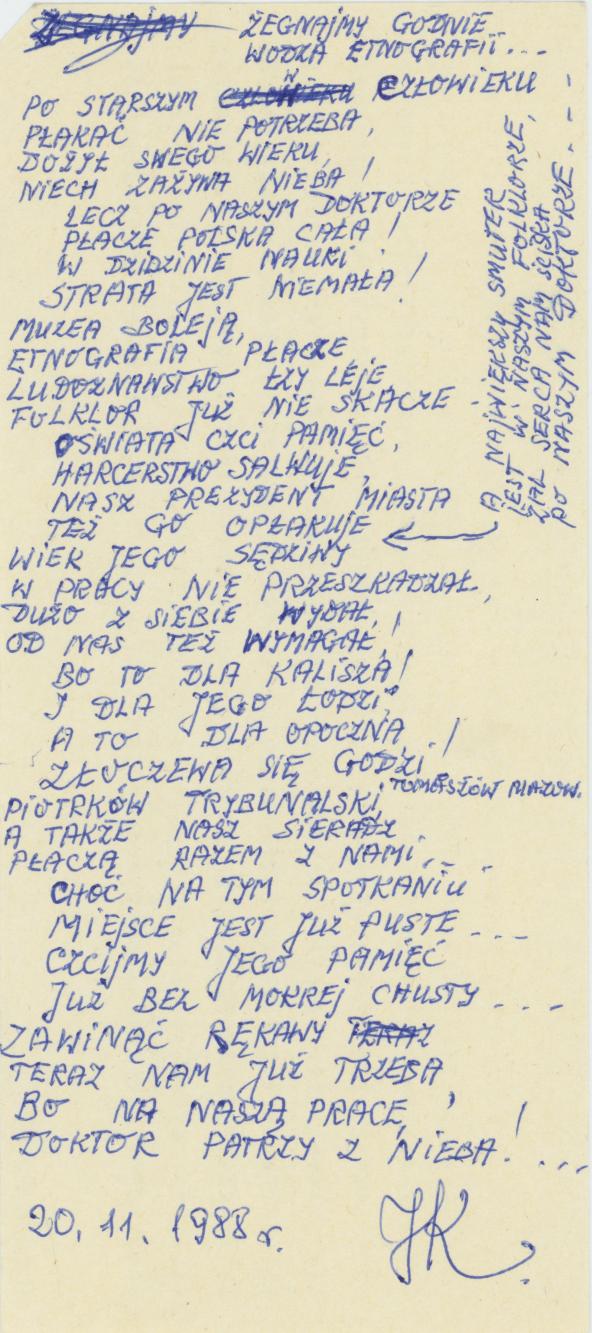 ŻEGNAJMY ŻEGNAJMY GODNIE
WODZA ETNOGRAFII...
PO STARSZYM CZŁOWIEKU CZŁOWIEKU
PŁAKAĆ NIE POTRZEBA,
DOŻYŁ SWEGO WIEKU,
NIECH ZAŻYWA NIEBA!
LECZ PO NASZYM DOKTORZE
PŁACZE POLSKA CAŁA!
W DZIDZINIE NAUKI
STRATA JEST NIEMAŁA!
MUZEA BOLEJĄ,
ETNOGRAFIA PŁACZE,
LUDOZNAWSTWO ŁZY LEJE,
FOLKLOR JUŻ NIE SKACZE
OŚWIATA CZCI PAMIĘĆ,
HARCERSTWO SALWUJE,
NASZ PREZYDENT MIASTA
TEŻ GO OPŁAKUJE
A NAJWIĘKSZY SMUTEK
JEST W NASZYM FOLKLORZE,
ŻAL SERCA NAM ŚCISKA
PO NASZYM DOKTORZE...
WIEK JEGO SĘDZIWY
W PRACY NIE PRZESZKADZAŁ,
DUŻO Z SIEBIE WYDAŁ,
OD NAS TEŻ WYMAGAŁ!
BO TO DLA KALISZA!
I DLA JEGO ŁODZI,
A TO DLA OPOCZNA
ZŁOCZEWA SIĘ GODZI!
PIOTRKÓW TRYBUNALSKI, TOMASZÓW MAZOW.
A TAKŻE NASZ SIERADZ
PŁACZĄ RAZEM Z NAMI...
CHOĆ NA TYM SPOTKANIU
MIEJSCE JEST JUŻ PUSTE...
CZCIJMY JEGO PAMIĘĆ
JUŻ BEZ MOKREJ CHUSTY...
ZAWINĄĆ RĘKAWY TERAZ
TERAZ NAM JUŻ TRZEBA
BO NA NASZĄ PRACĘ,
DOKTOR PATRZY Z NIEBA!...
20.11.1988 r.
JK